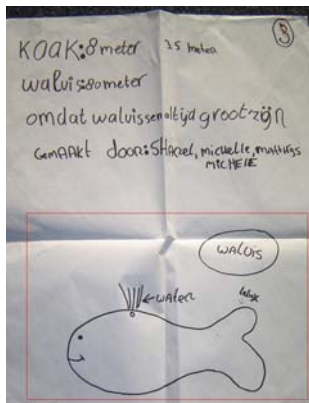 3
KOAK:8 meter 35 meter
walvis:80meter
omdat walvissen altijd groot zijn
GEMAAKt door:SHARel, michelle, mathijs
MICHELE
walvis
←water